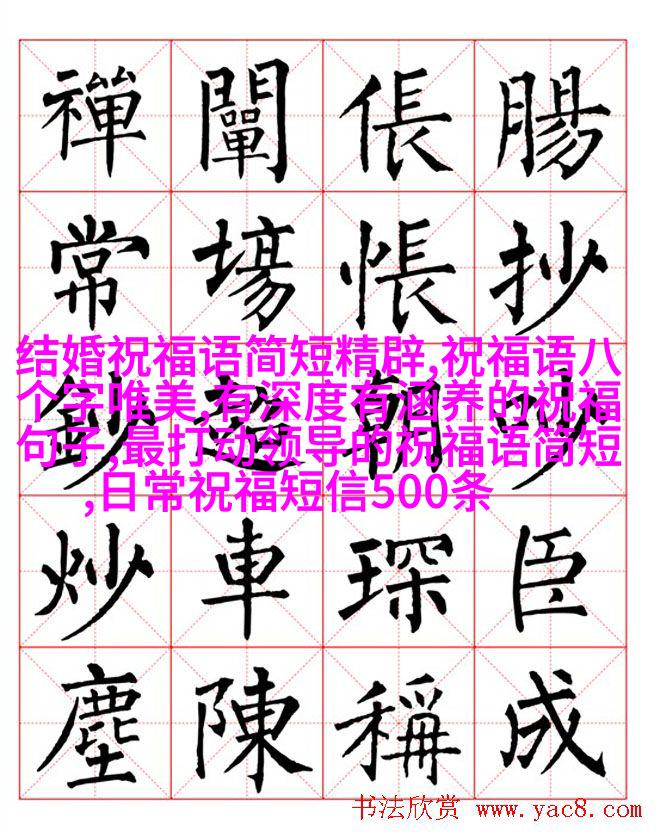 禪闡倀腸
常場悵抄
鈔超朝吵
炒車琛臣
塵陳稱成
结婚祝福语简短精辟,祝福语八
个字唯美,有深度有涵养的祝福
句子,最打动领导的祝福语简短
,日常祝福短信500条
书法欣赏 www.yac8.com